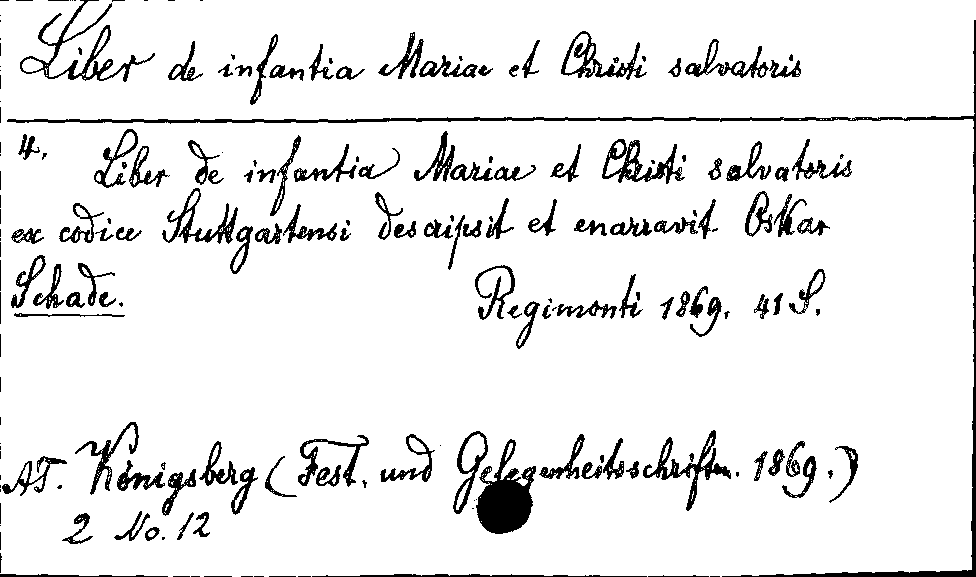 Liber de infantia Mariae et Christi salvatoris
4. Liber de infantia Mariae et Christi salvatoris
ex codice Stuttgartensi descripsit et enarravit Oskar
Schade.
Regimonti 1869. 41 S.
AT. Königsberg (Fest. und Gelegenheitsschriften. 1869.)
2 No. 12